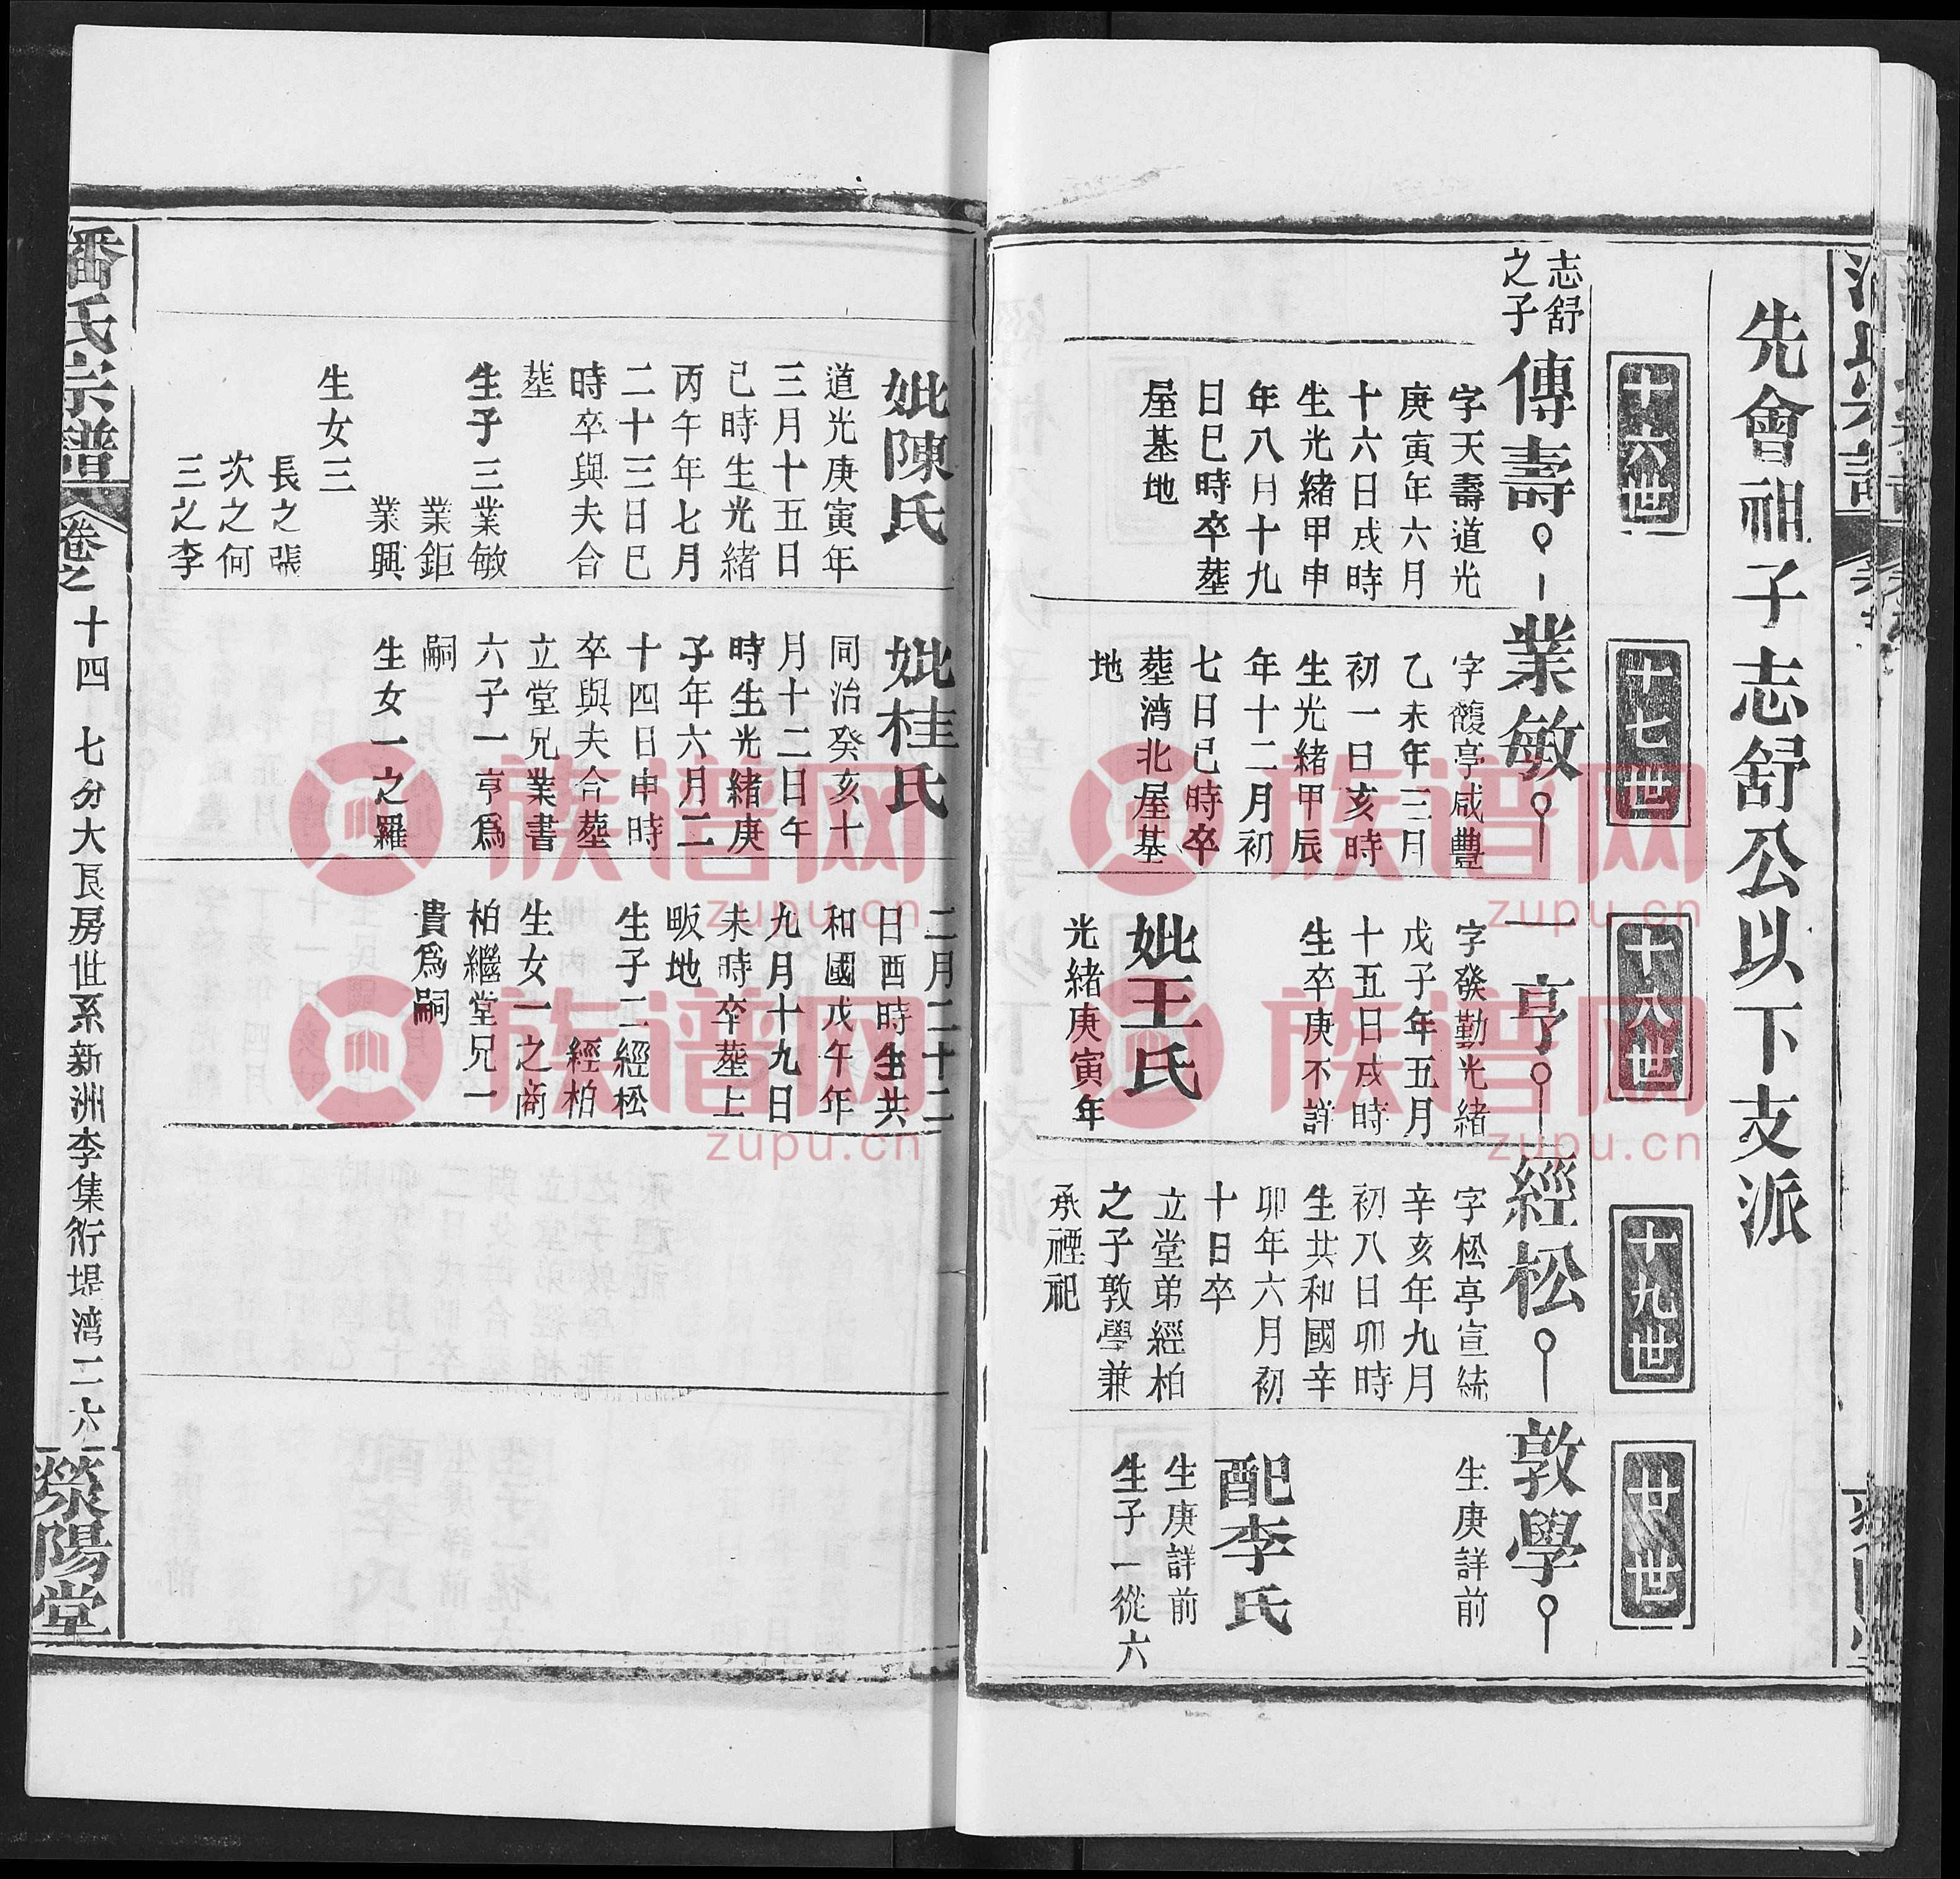 先會祖子志舒公以下支派
十六世
十七世
十八世
十九世
廿世
志舒
之子
傳壽
字天壽道光
庚寅年六月
十六日戌時
生光緒甲申
年八月十九
日巳時卒塟
屋基地
業敏
字馥亭咸豐
乙未年三月
初一日亥時
生光緒甲辰
年十二月初
七日巳時卒
塟濟北屋基
地
一亨
字發勤光緒
戊子年五月
十五日戌時
生卒庚不詳
妣王氏
光緒庚寅年
經松
字松亭宣統
辛亥年九月
初八日卯時
生共和國辛
卯年六月初
十日卒
立堂弟經柏
之子敦學兼
承禋祀
敦學
生庚詳前
配李氏
生庚詳前
生子一從六
妣陳氏
道光庚寅年
三月十五日
己時生光緒
丙午年七月
二十三日巳
時卒與夫合
塟
生子三業敏
業鉅
業興
生女三
長之張
次之何
三之李
妣桂氏
同治癸亥十
月十二日午
時生光緒庚
子年六月二
十四日申時
卒與夫合塟
立堂兄業書
六子一亨爲
嗣
生女一之羅
二月二十二
日酉時生共
和國戊午年
九月十九日
未時卒塟上
畈地
生子二經松
經柏
生女一之商
柏繼堂兄一
貴爲嗣
潘氏宗譜
卷之
十四
七分大艮房世系新洲李集衍堤湾二六
滎陽堂
族谱网
zupu.cn
族谱网
zupu.cn
族谱网
zupu.cn
族谱网
zupu.cn